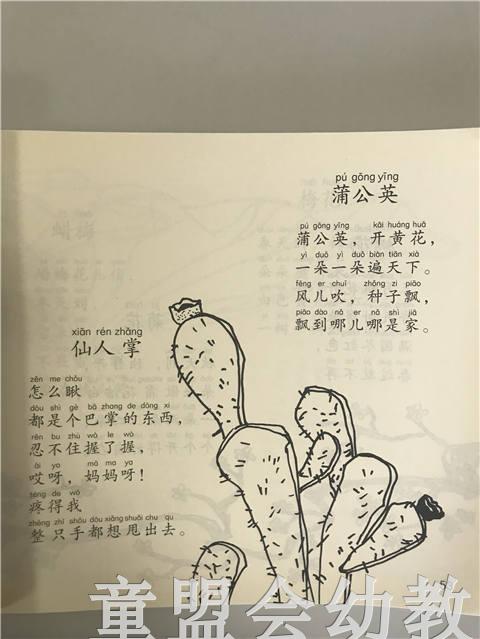 pú gōng yīng
蒲公英
pú gōng yīng kāi huáng huā
蒲公英，开黄花，
yì duǒ yì duǒ biàn tiān xià
一朵一朵遍天下。
fēng er chuī zhǒng zi piāo
风儿吹，种子飘，
piāo dào nǎ er nǎ shì jiā
飘到哪儿哪是家。
xiān rén zhǎng
仙人掌
zěn me chǒu
怎么瞅
dōu shì gè bā zhang de dōng xi
都是个巴掌的东西，
rěn bu zhù wò le wò
忍不住握了握，
āi yā mā ma ya
哎呀，妈妈呀！
téng de wǒ
疼得我
zhěng zhī shǒu dōu xiǎng shuǎi chu qu
整只手都想甩出去。
童盟会幼教